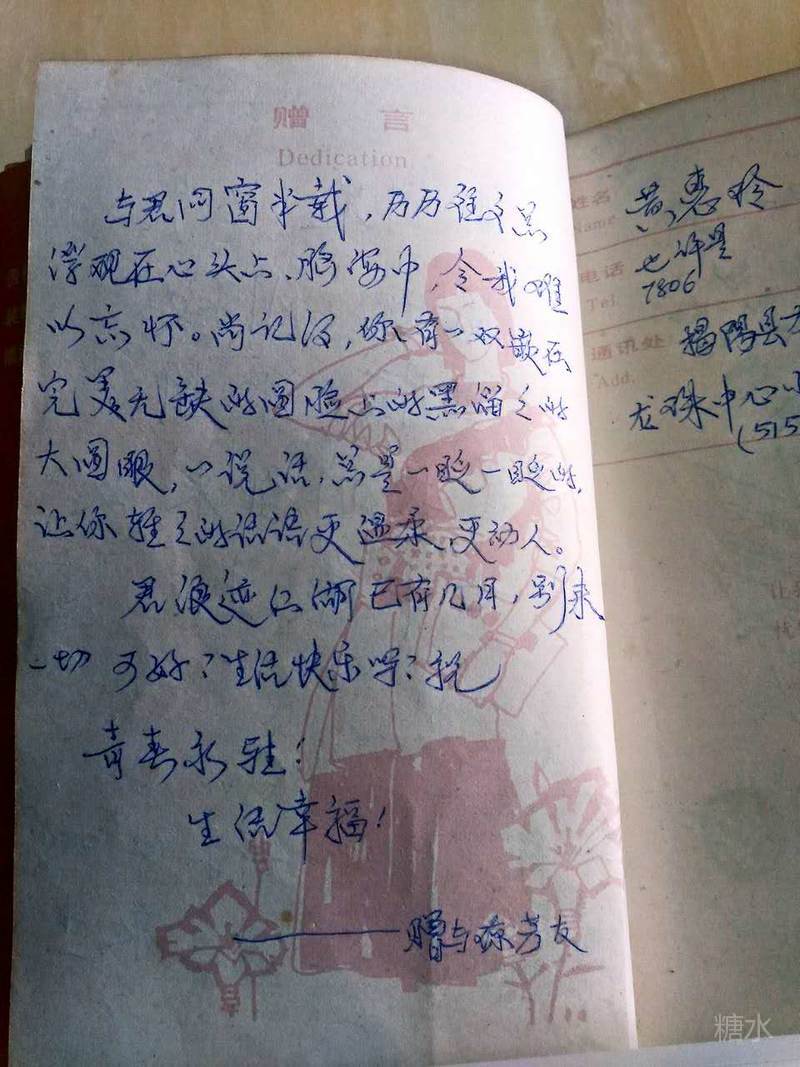 赠 言
Dedication
与君同窗半载，历历往事总
浮现在心头上、脑海中，令我难
以忘怀。尚记得，你有一双嵌在
完美无缺的圆脸上的黑溜之的
大圆眼，一说话，总是一眨一眨的，
让你轻之的话语更温柔、更动人。
君浪迹江湖已有几月，别来
一切可好？生活快乐吗？祝
青春永驻！
生活幸福！
——赠与琼芳友
姓名 黄惠玲
Name
电话
Tel. 7806
通讯处 揭阳县
Add.
龙珠中心小
(515
糖水